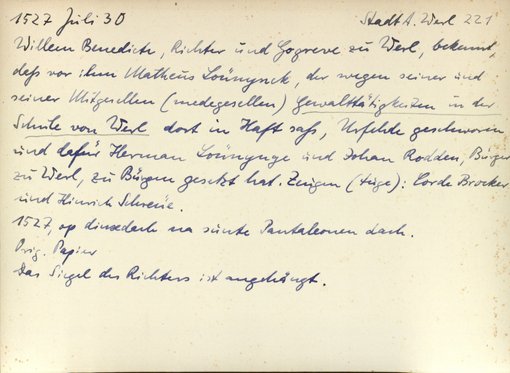 1527 Juli 30 Stadt A. Werl 221
Willem Benedicte, Richter und Gogreve zu Werl, bekennt,
daß vor ihm Matheus, der wegen seiner und
seiner Mitgesellen (medegesellen) Gewalttätigkeiten in der
Schule von Werl dort in Haft saß, Urfehde geschworen
und dafür Herman und Johan Rodden, Bürger
zu Werl, zu Bürgen gesetzt hat. Zeugen (tüge): Corde Brocker
und Hinrich
1527, op dinxdach na sunte Pantaleonen dach.
Orig. Papier
Das Siegel des Richters ist angehängt.